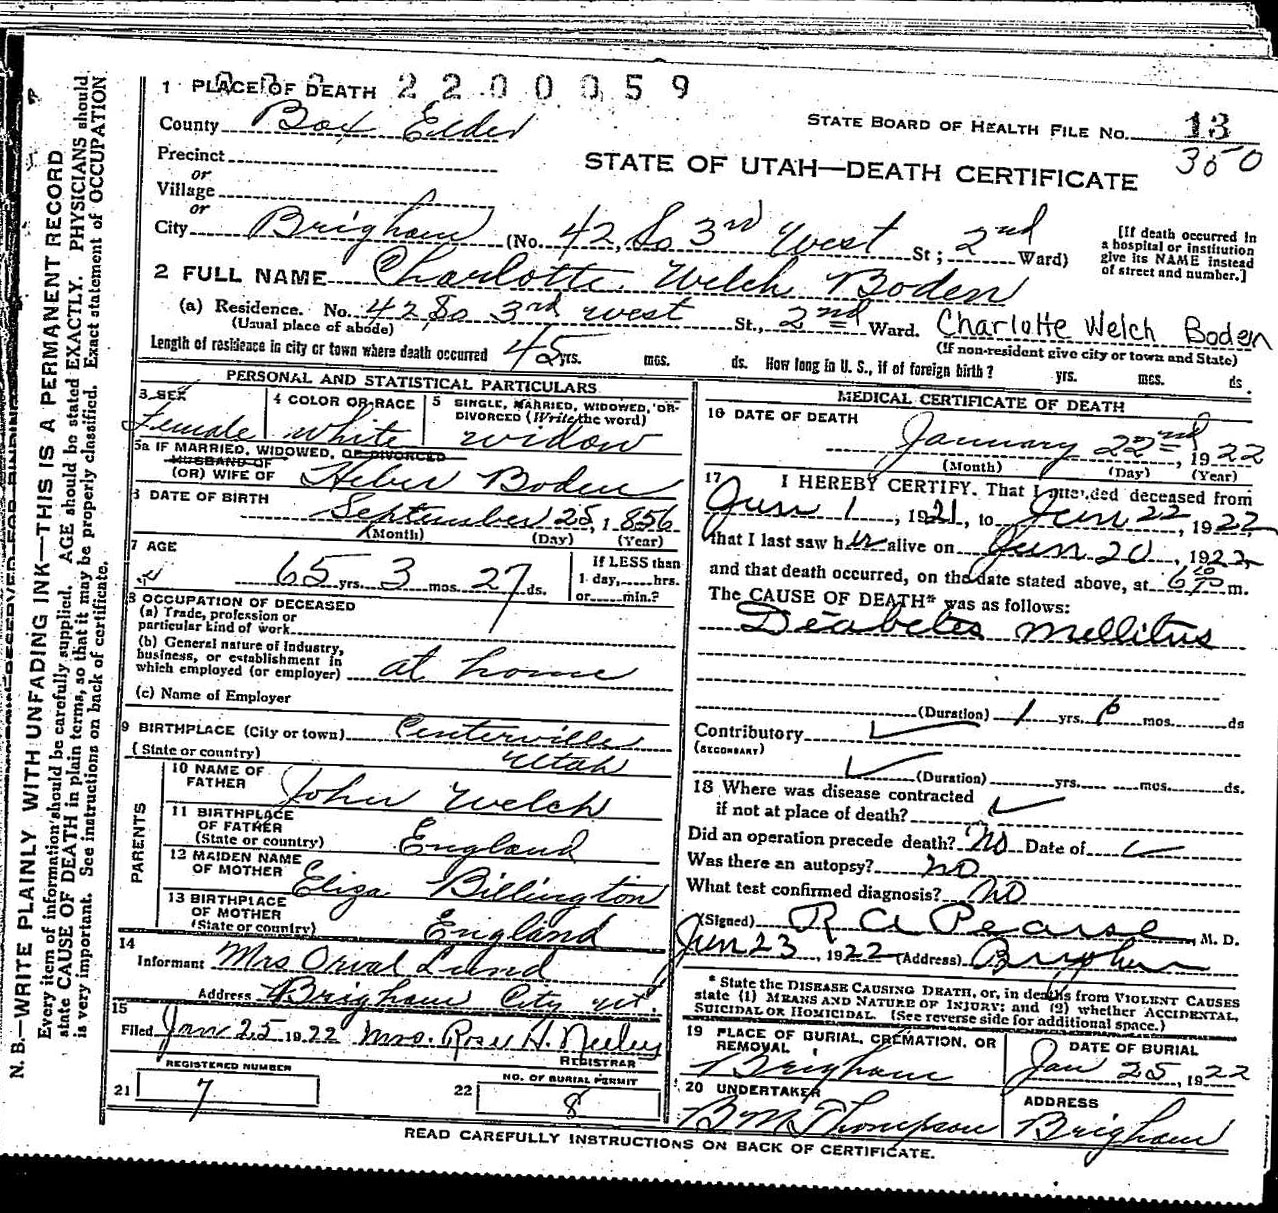 1 PLACE OF DEATH 2200059
County Box Elder
STATE BOARD OF HEALTH FILE No. 13
350
Precinct
or
Village
or
STATE OF UTAH—DEATH CERTIFICATE
City Brigham (No. 42 So 3rd West St; 2nd Ward)
[If death occurred in
a hospital or institution
give its NAME instead
of street and number.]
2 FULL NAME Charlotte Welch Boden
(a) Residence. No. 42 So 3rd West St., 2nd Ward. Charlotte Welch Boden
(Usual place of abode) (If non-resident give city or town and State)
Length of residence in city or town where death occurred 45 yrs. mos. ds. How long in U. S., if of foreign birth? yrs. mos. ds.
PERSONAL AND STATISTICAL PARTICULARS
3 SEX
Female
4 COLOR OR RACE
White
5 SINGLE, MARRIED, WIDOWED, OR
DIVORCED (Write the word)
Widow
5a IF MARRIED, WIDOWED, OR DIVORCED
HUSBAND OF
(OR) WIFE OF Heber Boden
6 DATE OF BIRTH
September 25, 1856
(Month) (Day) (Year)
7 AGE
65 yrs. 3 mos. 27 ds.
If LESS than
1 day, hrs.
or min.?
8 OCCUPATION OF DECEASED
(a) Trade, profession or
particular kind of work
(b) General nature of Industry,
business, or establishment in
which employed (or employer) at home
(c) Name of Employer
9 BIRTHPLACE (City or town) Centerville
(State or country) Utah
PARENTS
10 NAME OF
FATHER John Welch
11 BIRTHPLACE
OF FATHER
(State or country) England
12 MAIDEN NAME
OF MOTHER Eliza Billington
13 BIRTHPLACE
OF MOTHER
(State or country) England
14
Informant Mrs Orval Lund
Address Brigham City Ut.
15
Filed Jan 25 1922 Mrs. Rose H. Neeley
REGISTRAR
REGISTERED NUMBER
21 7
NO. OF BURIAL PERMIT
22 8
MEDICAL CERTIFICATE OF DEATH
16 DATE OF DEATH
January 22nd, 1922
(Month) (Day) (Year)
17 I HEREBY CERTIFY. That I attended deceased from
Jun 1, 1921, to Jun 22, 1922,
that I last saw her alive on Jun 20, 1922
and that death occurred, on the date stated above, at m.
The CAUSE OF DEATH* was as follows:
Diabetes mellitus
(Duration) 1 yrs. 6 mos. ds
Contributory
(SECONDARY)
(Duration) yrs. mos. ds.
18 Where was disease contracted
if not at place of death?
Did an operation precede death? No Date of
Was there an autopsy? No
What test confirmed diagnosis? No
(Signed) R A Pearse, M. D.
Jun 23, 1922 (Address) Brigham
* State the DISEASE CAUSING DEATH, or, in deaths from VIOLENT CAUSES
state (1) MEANS AND NATURE OF INJURY; and (2) whether ACCIDENTAL,
SUICIDAL OR HOMICIDAL. (See reverse side for additional space.)
19 PLACE OF BURIAL, CREMATION, OR
REMOVAL
Brigham
DATE OF BURIAL
Jan 25, 1922
20 UNDERTAKER
B M Thompson
ADDRESS
Brigham
READ CAREFULLY INSTRUCTIONS ON BACK OF CERTIFICATE.
N. B.—WRITE PLAINLY WITH UNFADING INK—THIS IS A PERMANENT RECORD
Every item of information should be carefully supplied. AGE should be stated EXACTLY. PHYSICIANS should
state CAUSE OF DEATH in plain terms, so that it may be properly classified. Exact statement of OCCUPATION
is very important. See instructions on back of certificate.